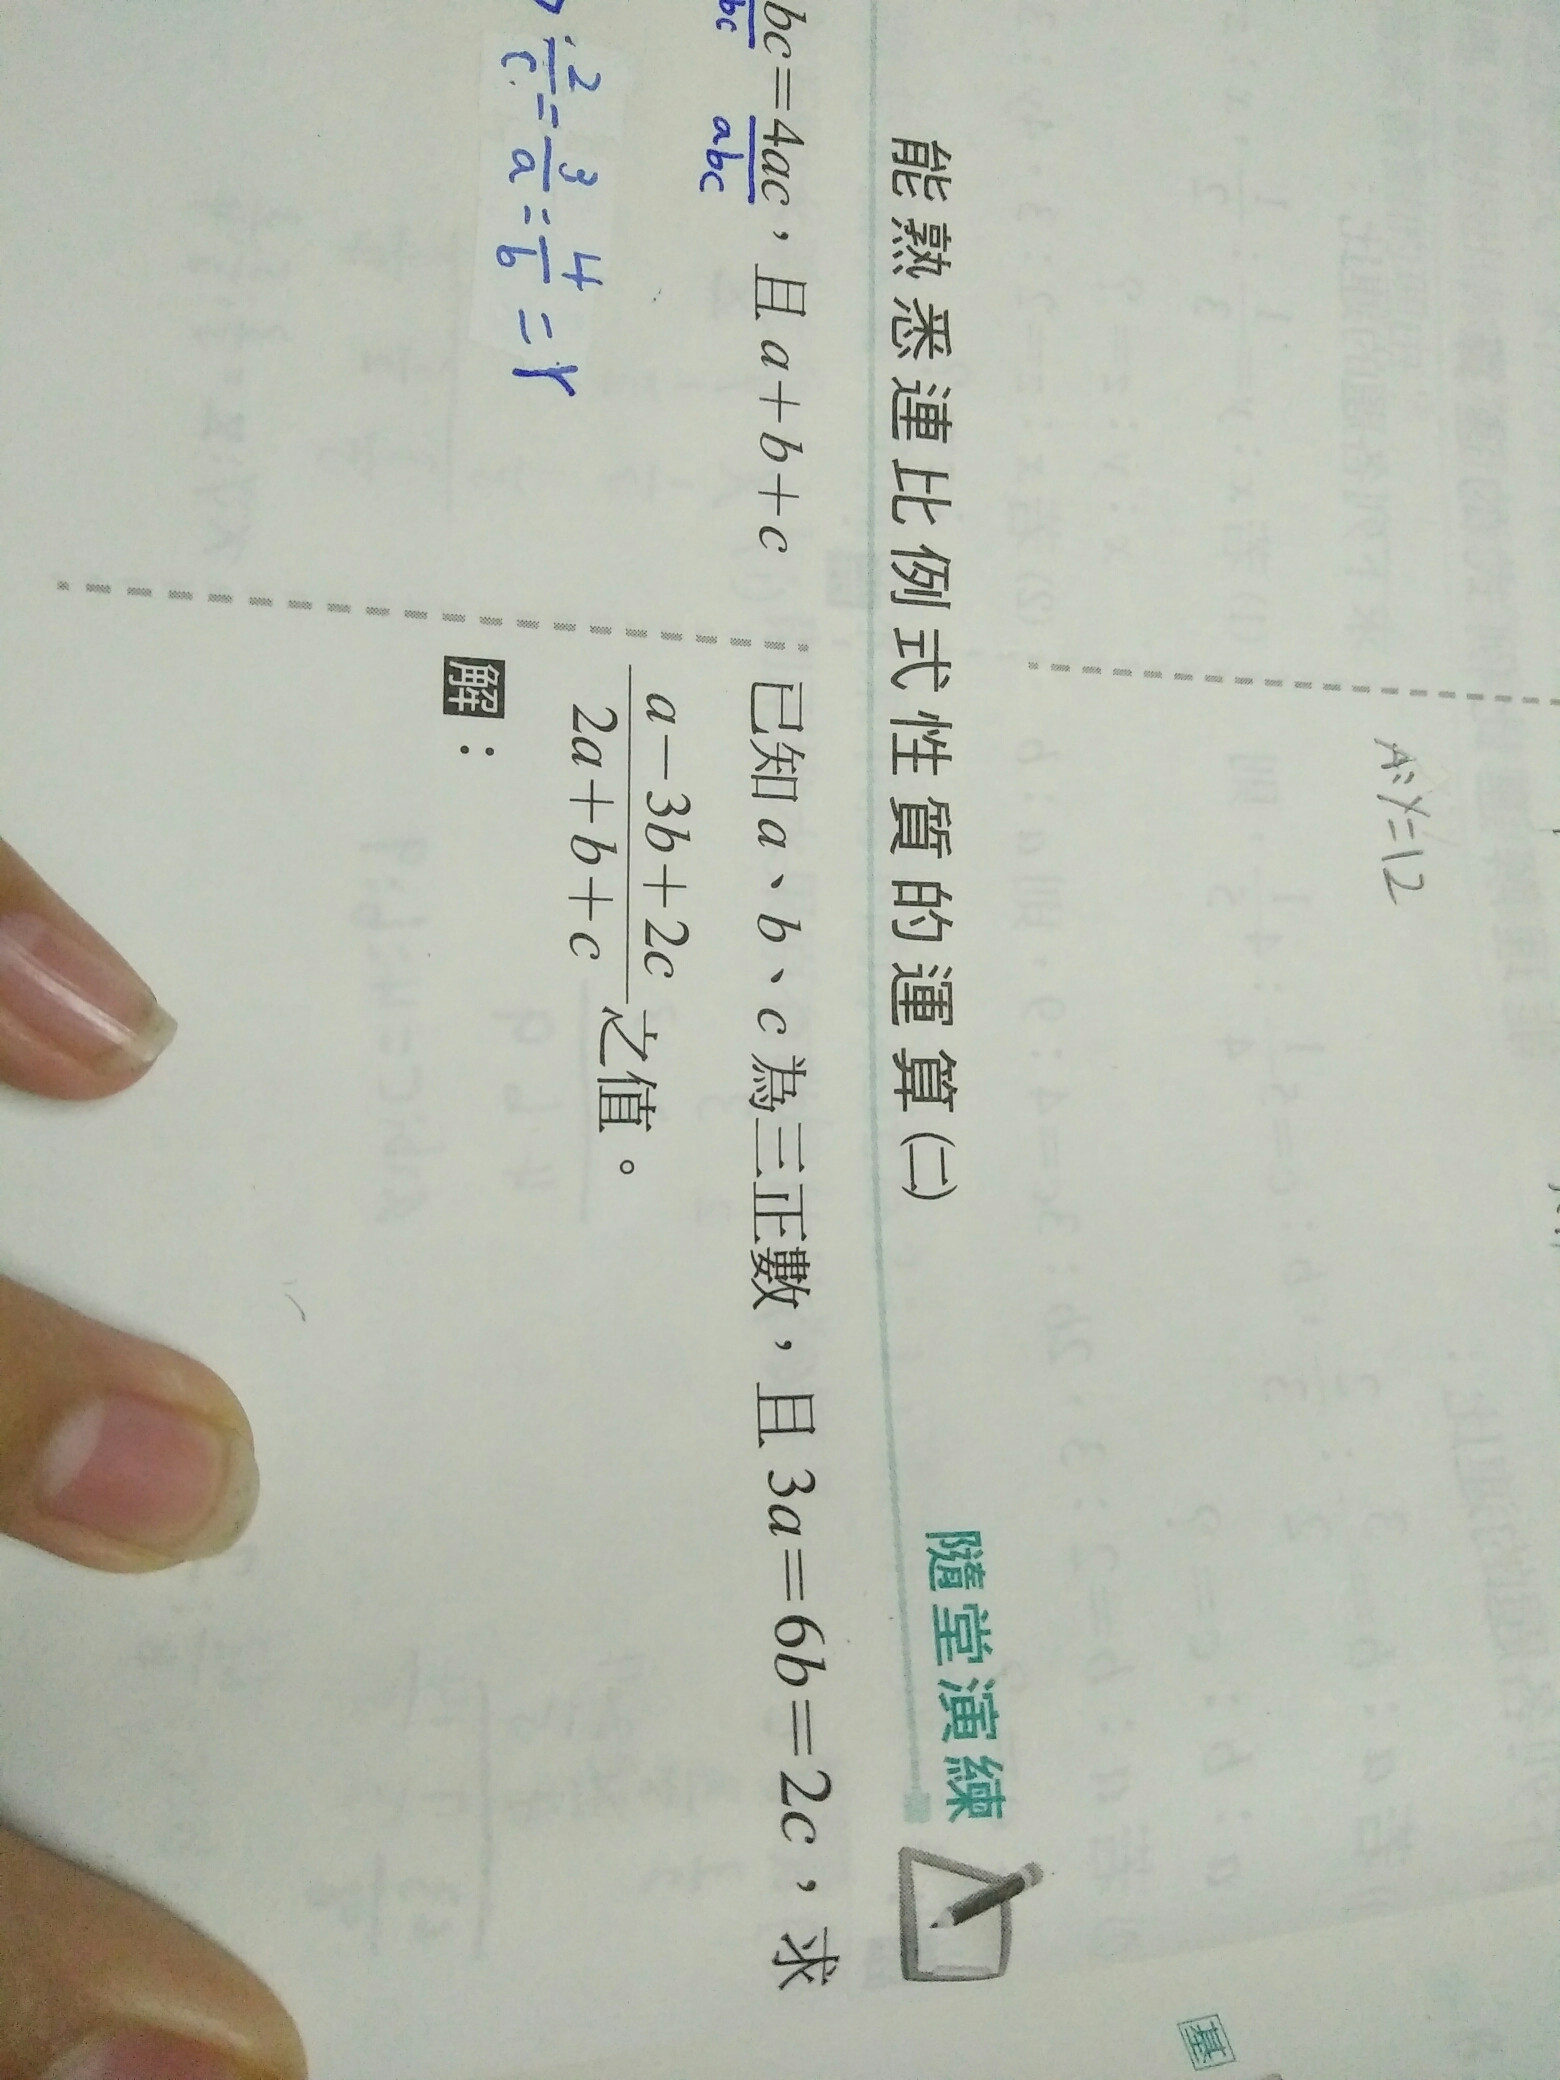 A:Y=12
能熟悉連比例式性質的運算(二)
隨堂演練
bc=4ac，且a+b+c
bc abc
2/c=3/a=4/b=r
已知a、b、c為三正數，且3a=6b=2c，求
a-3b+2c/2a+b+c之值。
解：
基